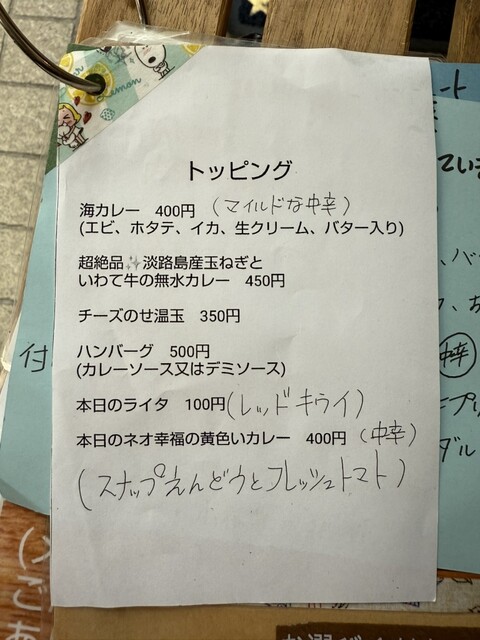 トッピング
海カレー 400円 (マイルドな中辛)
(エビ、ホタテ、イカ、生クリーム、バター入り)
超絶品✨淡路島産玉ねぎと
いわて牛の無水カレー 450円
チーズのせ温玉 350円
ハンバーグ 500円
(カレーソース又はデミソース)
本日のライタ 100円(レッドキウイ)
本日のネオ幸福の黄色いカレー 400円 (中辛)
(スナップえんどうとフレッシュトマト)
付
ート
ていき
、バ
中辛
ダル